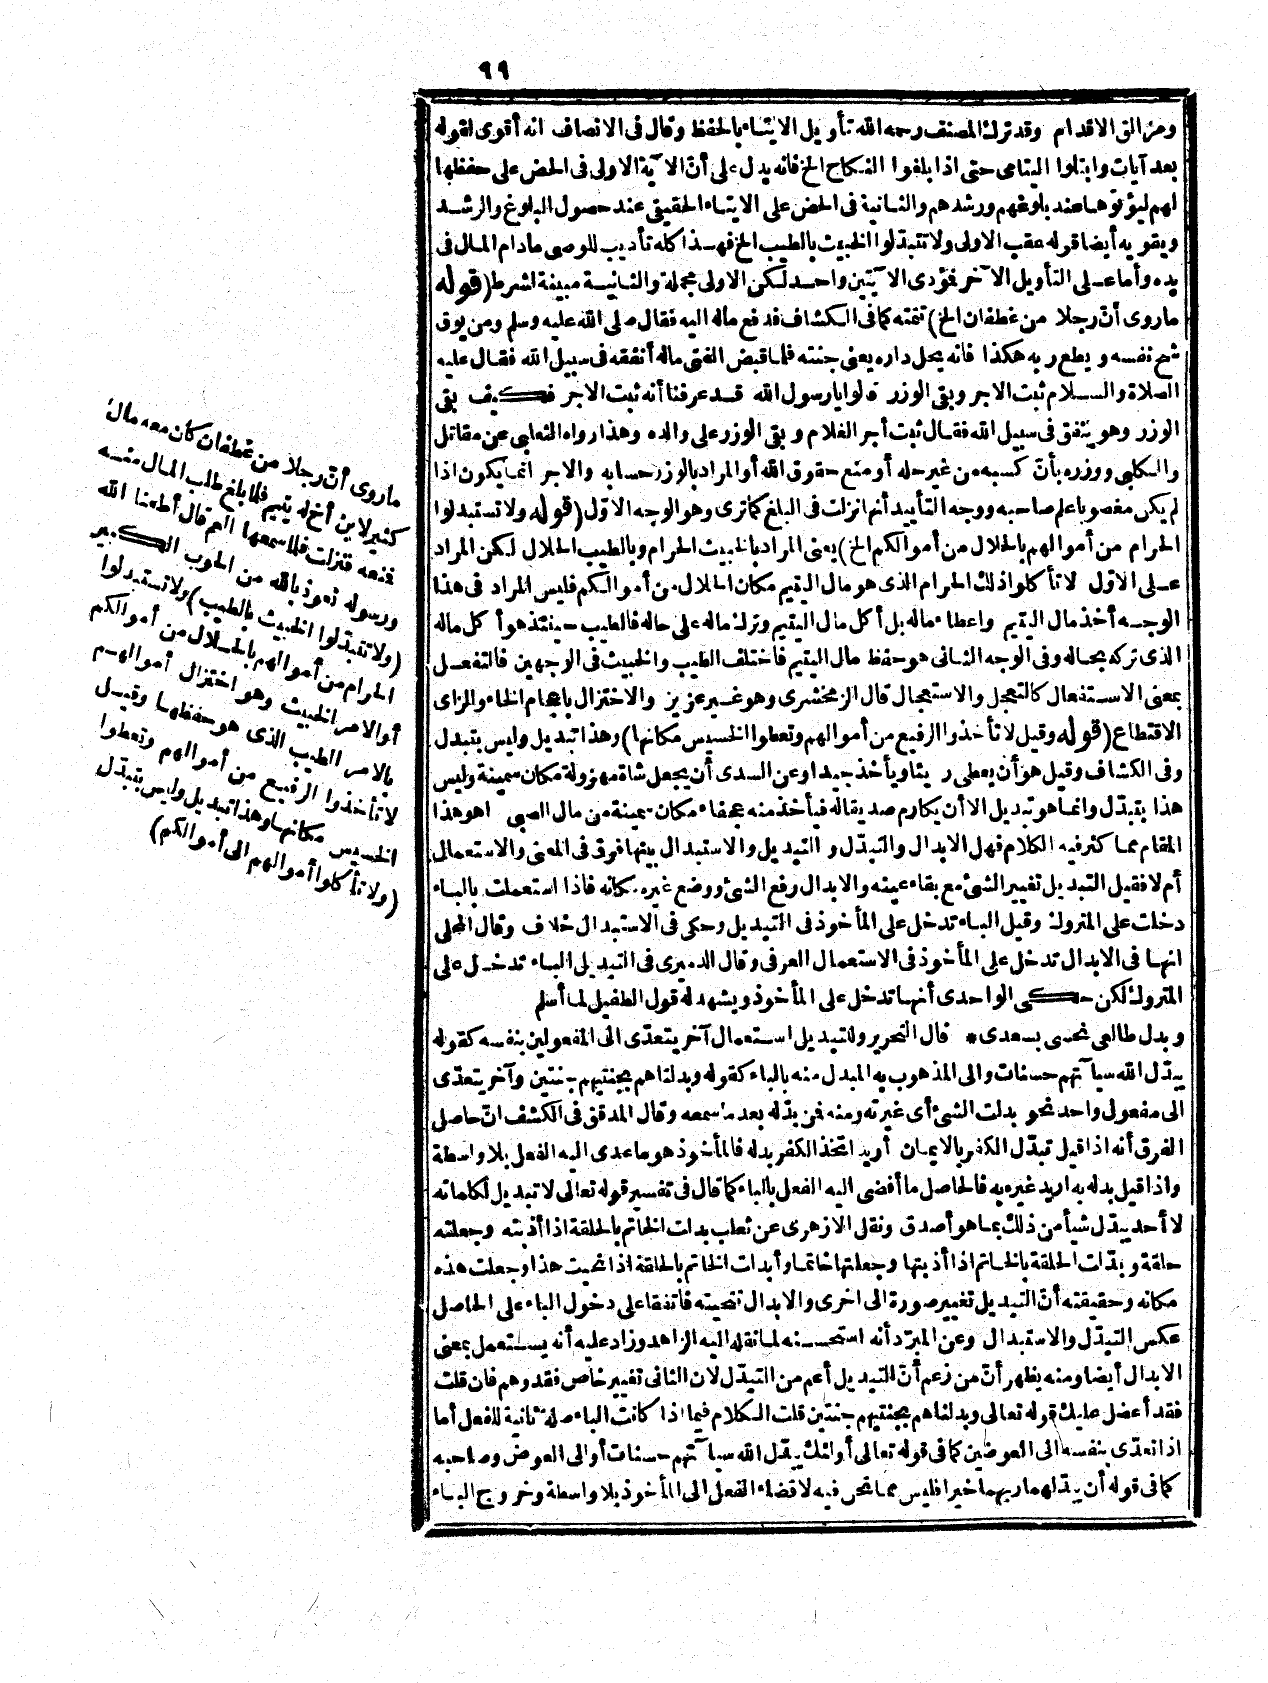 ٩٩
ومزالق الاقدام وقد ترك المصنف رحمه الله تأويل الايتاء بالحفظ وقال فى الانصاف انه أقوى لقوله
بعد آيات وابتلوا اليتامى حتى اذا بلغوا النكاح الخ فانه يدل على أنّ الآية الاولى فى الحض على حفظها
لهم ليؤتوها عند بلوغهم ورشدهم والثانية فى الحض على الايتاء الحقيقى عند حصول البلوغ والرشد
ويقويه أيضا قوله عقب الاولى ولا تتبدّلوا الخبيث بالطيب الخ فهذا كله تأديب للوصى مادام المال فى
يده وأما على التأويل الآخر فؤدى الآيتين واحد لكن الاولى مجملة والثانية مبينة لشرط (قوله
ماروى أنّ رجلا من غطفان الخ) تتمته كما فى الكشاف فدفع ماله اليه فقال صلى الله عليه وسلم ومن يوق
شح نفسه ويطع ربه هكذا فانه يحل داره يعنى جنته فلما قبض الفتى ماله أنفقه فى سبيل الله فقال عليه
الصلاة والسلام ثبت الاجر وبقى الوزر قالوا يارسول الله قد عرفنا أنه ثبت الاجر فكيف بقى
الوزر وهو ينفق فى سبيل الله فقال ثبت أجر الغلام وبقى الوزر على والده وهذا رواه الثعلبى عن مقاتل
والكلبى ووزره بأنّ كسبه من غير حله أو منع حقوق الله أو المراد بالوزر حسابه والاجر انما يكون اذا
لم يكن مغصوبا علم صاحبه ووجه التأييد أنها نزلت فى البلغ كما ترى وهو الوجه الاوّل (قوله ولا تستبدلوا
الحرام من أموالهم بالحلال من أموالكم الخ) يعنى المراد بالخبيث الحرام وبالطيب الحلال لكن المراد
على الاوّل لا تأكلوا ذلك الحرام الذى هو مال اليتيم مكان الحلال من أموالكم فليس المراد فى هذا
الوجه أخذ مال اليتيم واعطاء ماله بل أكل مال اليتيم وترك ماله على حاله فالطيب حينئذ هو أكل ماله
الذى تركه بحاله وفى الوجه الثانى هو حفظ مال اليتيم فاختلف الطيب والخبيث فى الوجهين فالتفعل
بمعنى الاستفعال كالتعجل والاستعجال قال الزمخشرى وهو غير عزيز والاختزال باعجام الخاء والزاى
الاقتطاع (قوله وقيل لا تأخذوا الرفيع من أموالهم وتعطوا الخسيس مكانها) وهذا تبديل وليس بتبدل
وفى الكشاف وقيل هو أن يعطى رديئا ويأخذ جيدا وعن السدى أن يجعل شاة مهزولة مكان سمينة وليس
هذا بتبدّل وانما هو تبديل الا أن يكارم صديقا له فيأخذ منه عجفاء مكان سمينة من مال الصبى اه وهذا
المقام مما كثر فيه الكلام فهل الابدال والتبدّل والتبديل والاستبدال بينها فرق فى المعنى والاستعمال
أم لا فقيل التبديل تغيير الشئ مع بقاء عينه والابدال رفع الشئ ووضع غيره مكانه فاذا استعملت بالباء
دخلت على المتروك وقيل الباء تدخل على المأخوذ فى التبديل وحكى فى الاستبدال خلاف وقال المحلى
انها فى الابدال تدخل على المأخوذ فى الاستعمال العرفى وقال الدميرى فى التبديل الباء تدخل على
المتروك لكن حكى الواحدى أنها تدخل على المأخوذ ويشهد له قول الطفيل لما أسلم
وبدل طالعى نحسى بسعدى * قال النحرير وللتبديل استعمال آخر يتعدّى الى المفعولين بنفسه كقوله
يبدّل الله سيآتهم حسنات والى المذهوب به المبدل منه بالباء كقوله وبدلناهم بجنتيهم جنتين وآخر يتعدّى
الى مفعول واحد نحو بدلت الشئ أى غيرته ومنه فمن بدّله بعد ما سمعه وقال المدقق فى الكشف انّ حاصل
الفرق أنه اذا قيل تبدّل الكفر بالايمان أريد اتخذ الكفر بدله فالمأخوذ هو ما عدى اليه الفعل بلا واسطة
واذا قيل بدله به اريد غيره به فالحاصل ما أفضى اليه الفعل بالباء كما قال فى تفسير قوله تعالى لا تبديل لكلماته
لا أحد يبدّل شيأ من ذلك بما هو أصدق ونقل الازهرى عن ثعلب بدلت الخاتم بالحلقة اذا أذبته وجعلته
حلقة وبدّلت الحلقة بالخاتم اذا أذبتها وجعلتها خاتما وأبدلت الخاتم بالحلقة اذا نحيت هذا وجعلت هذه
مكانه وحقيقته أنّ التبديل تغيير صورة الى اخرى والابدال تنحيته فاتفقا على دخول الباء على الحاصل
عكس التبدّل والاستبدال وعن المبرّد أنه استحسنه لما نقله اليه الزاهد وزاد عليه أنه يستعمل بمعنى
الابدال أيضا ومنه يظهر أنّ من زعم أنّ التبديل أعم من التبدّل لان الثانى تغيير خاص فقد وهم فان قلت
فقد أعضل عليك قوله تعالى وبدلناهم بجنتيهم جنتين قلت الكلام فيما اذا كانت الباء صلة ثانية للفعل أما
اذا تعدّى بنفسه الى العوضين كما فى قوله تعالى أولئك يبدّل الله سيآتهم حسنات أو الى العوض وصاحبه
كما فى قوله أن يبدّلهما ربهما خيرا فليس مما نحن فيه لاقتضاء الفعل الى المأخوذ بلا واسطة وخروج الباء
ماروى أنّ رجلا من غطفان كان معه مال
كثير لابن أخ له يتيم فلما بلغ طلب المال منه
فمنعه فنزلت فلما سمعها العم قال أطعنا الله
ورسوله نعوذ بالله من الحوب الكبير
(ولا تتبدّلوا الخبيث بالطيب) ولا تستبدلوا
الحرام من أموالهم بالحلال من أموالكم
أو الامر الخبيث وهو اختزال أموالهم
بالامر الطيب الذى هو حفظها وقيل
لا تأخذوا الرفيع من أموالهم وتعطوا
الخسيس مكانها وهذا تبديل وليس بتبدّل
(ولا تأكلوا أموالهم الى أموالكم)